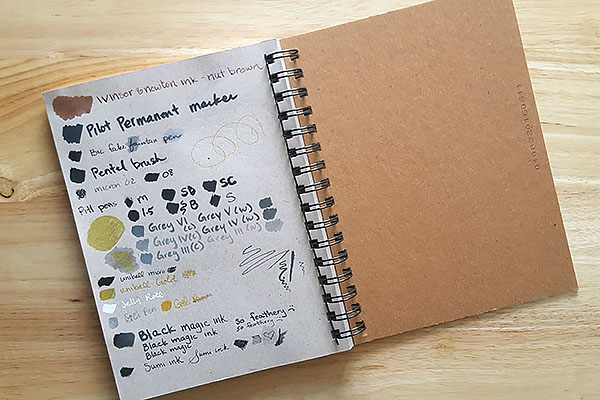 Winsor & newton ink - nut brown
Pilot Permanent marker
Bic fake fountain pen
Pentel brush
micron 02 08
Pitt pens m SB SC
1.5 SB S
Grey V (c) Grey V (w)
Grey IV (c) Grey IV (w)
Grey III (c) Grey III (w)
uniball micro
uniball Gold
Jelly Roll
Gel Pen Gel
Black magic ink So feathery :(
Black magic ink So feathery
Black magic
Sumi ink Sumi ink